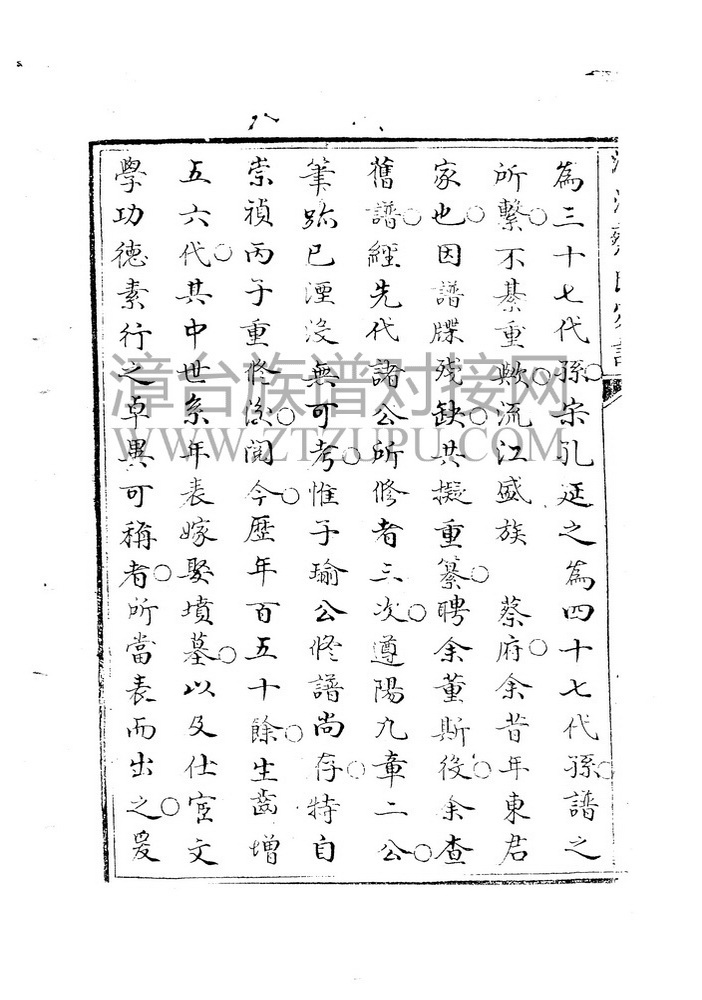 為三十七代孫○宋孔延之為四十七代孫○譜之
所繫○不綦重歟○流江盛族 蔡府○余昔年東君
家也○因譜牒残缺○共擬重纂○聘余董斯役○余查
舊譜○經先代諸公所修者三次○遵陽九章二公○
筆跡已湮没無可考○惟子瑜公修譜尚存○特自
崇禎丙子重修後○閱今○歷年百五十餘○生齒增
五六代○其中世系年表嫁娶墳墓○以及仕宦文
學功德素行之卓異可稱者○所當表而出之○爰
蔡氏
漳台族谱对接网
WWW.ZTZUPU.COM